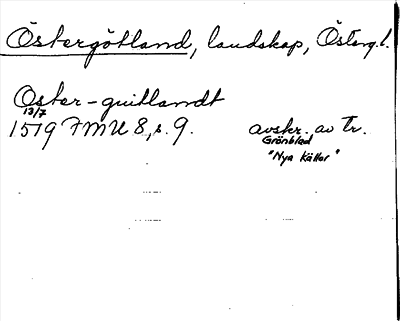 Östergötland, landskap, Österg.l.
Oster-guitlandt
13/7
1519 FMU 8, s. 9. avskr. av tr.
Grönblad
"Nya Källor"